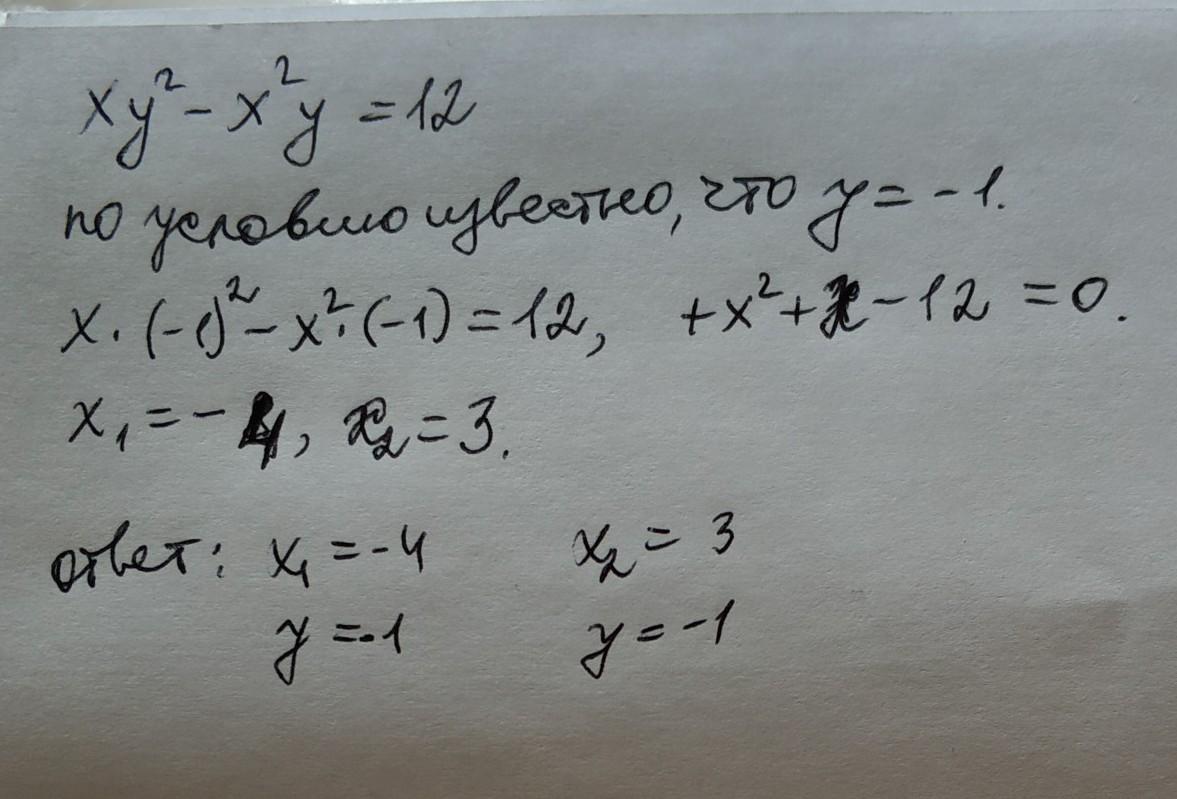 xy² - x²y = 12
по условию известно, что y = -1.
x · (-1)² - x² · (-1) = 12, +x² + x - 12 = 0.
x₁ = -4, x₂ = 3.
ответ: x₁ = -4 x₂ = 3
y = -1 y = -1